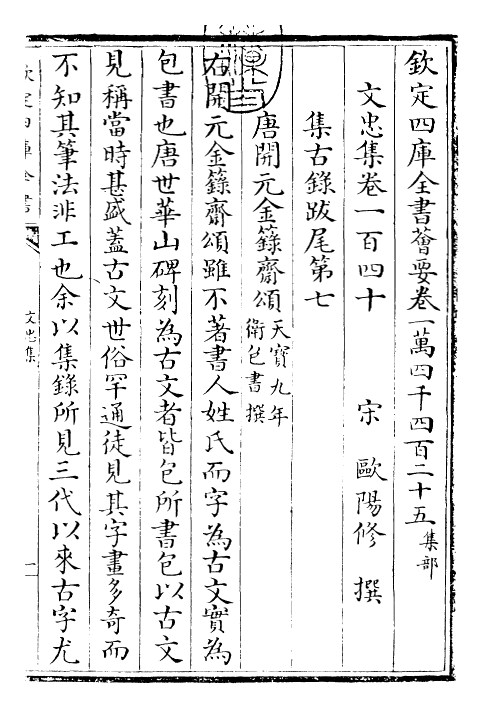 欽定四庫全書薈要卷一萬四千四百二十五集部
文忠集卷一百四十 宋 歐陽修 撰
集古錄跋尾第七
唐開元金籙齋頌天寶九年衛包書撰
右開元金籙齋頌雖不著書人姓氏而字為古文實為
包書也唐世華山碑刻為古文者皆包所書包以古文
見稱當時甚盛蓋古文世俗罕通徒見其字畫多奇而
不知其筆法非工也余以集錄所見三代以來古字尤
欽定四庫全書
文忠集